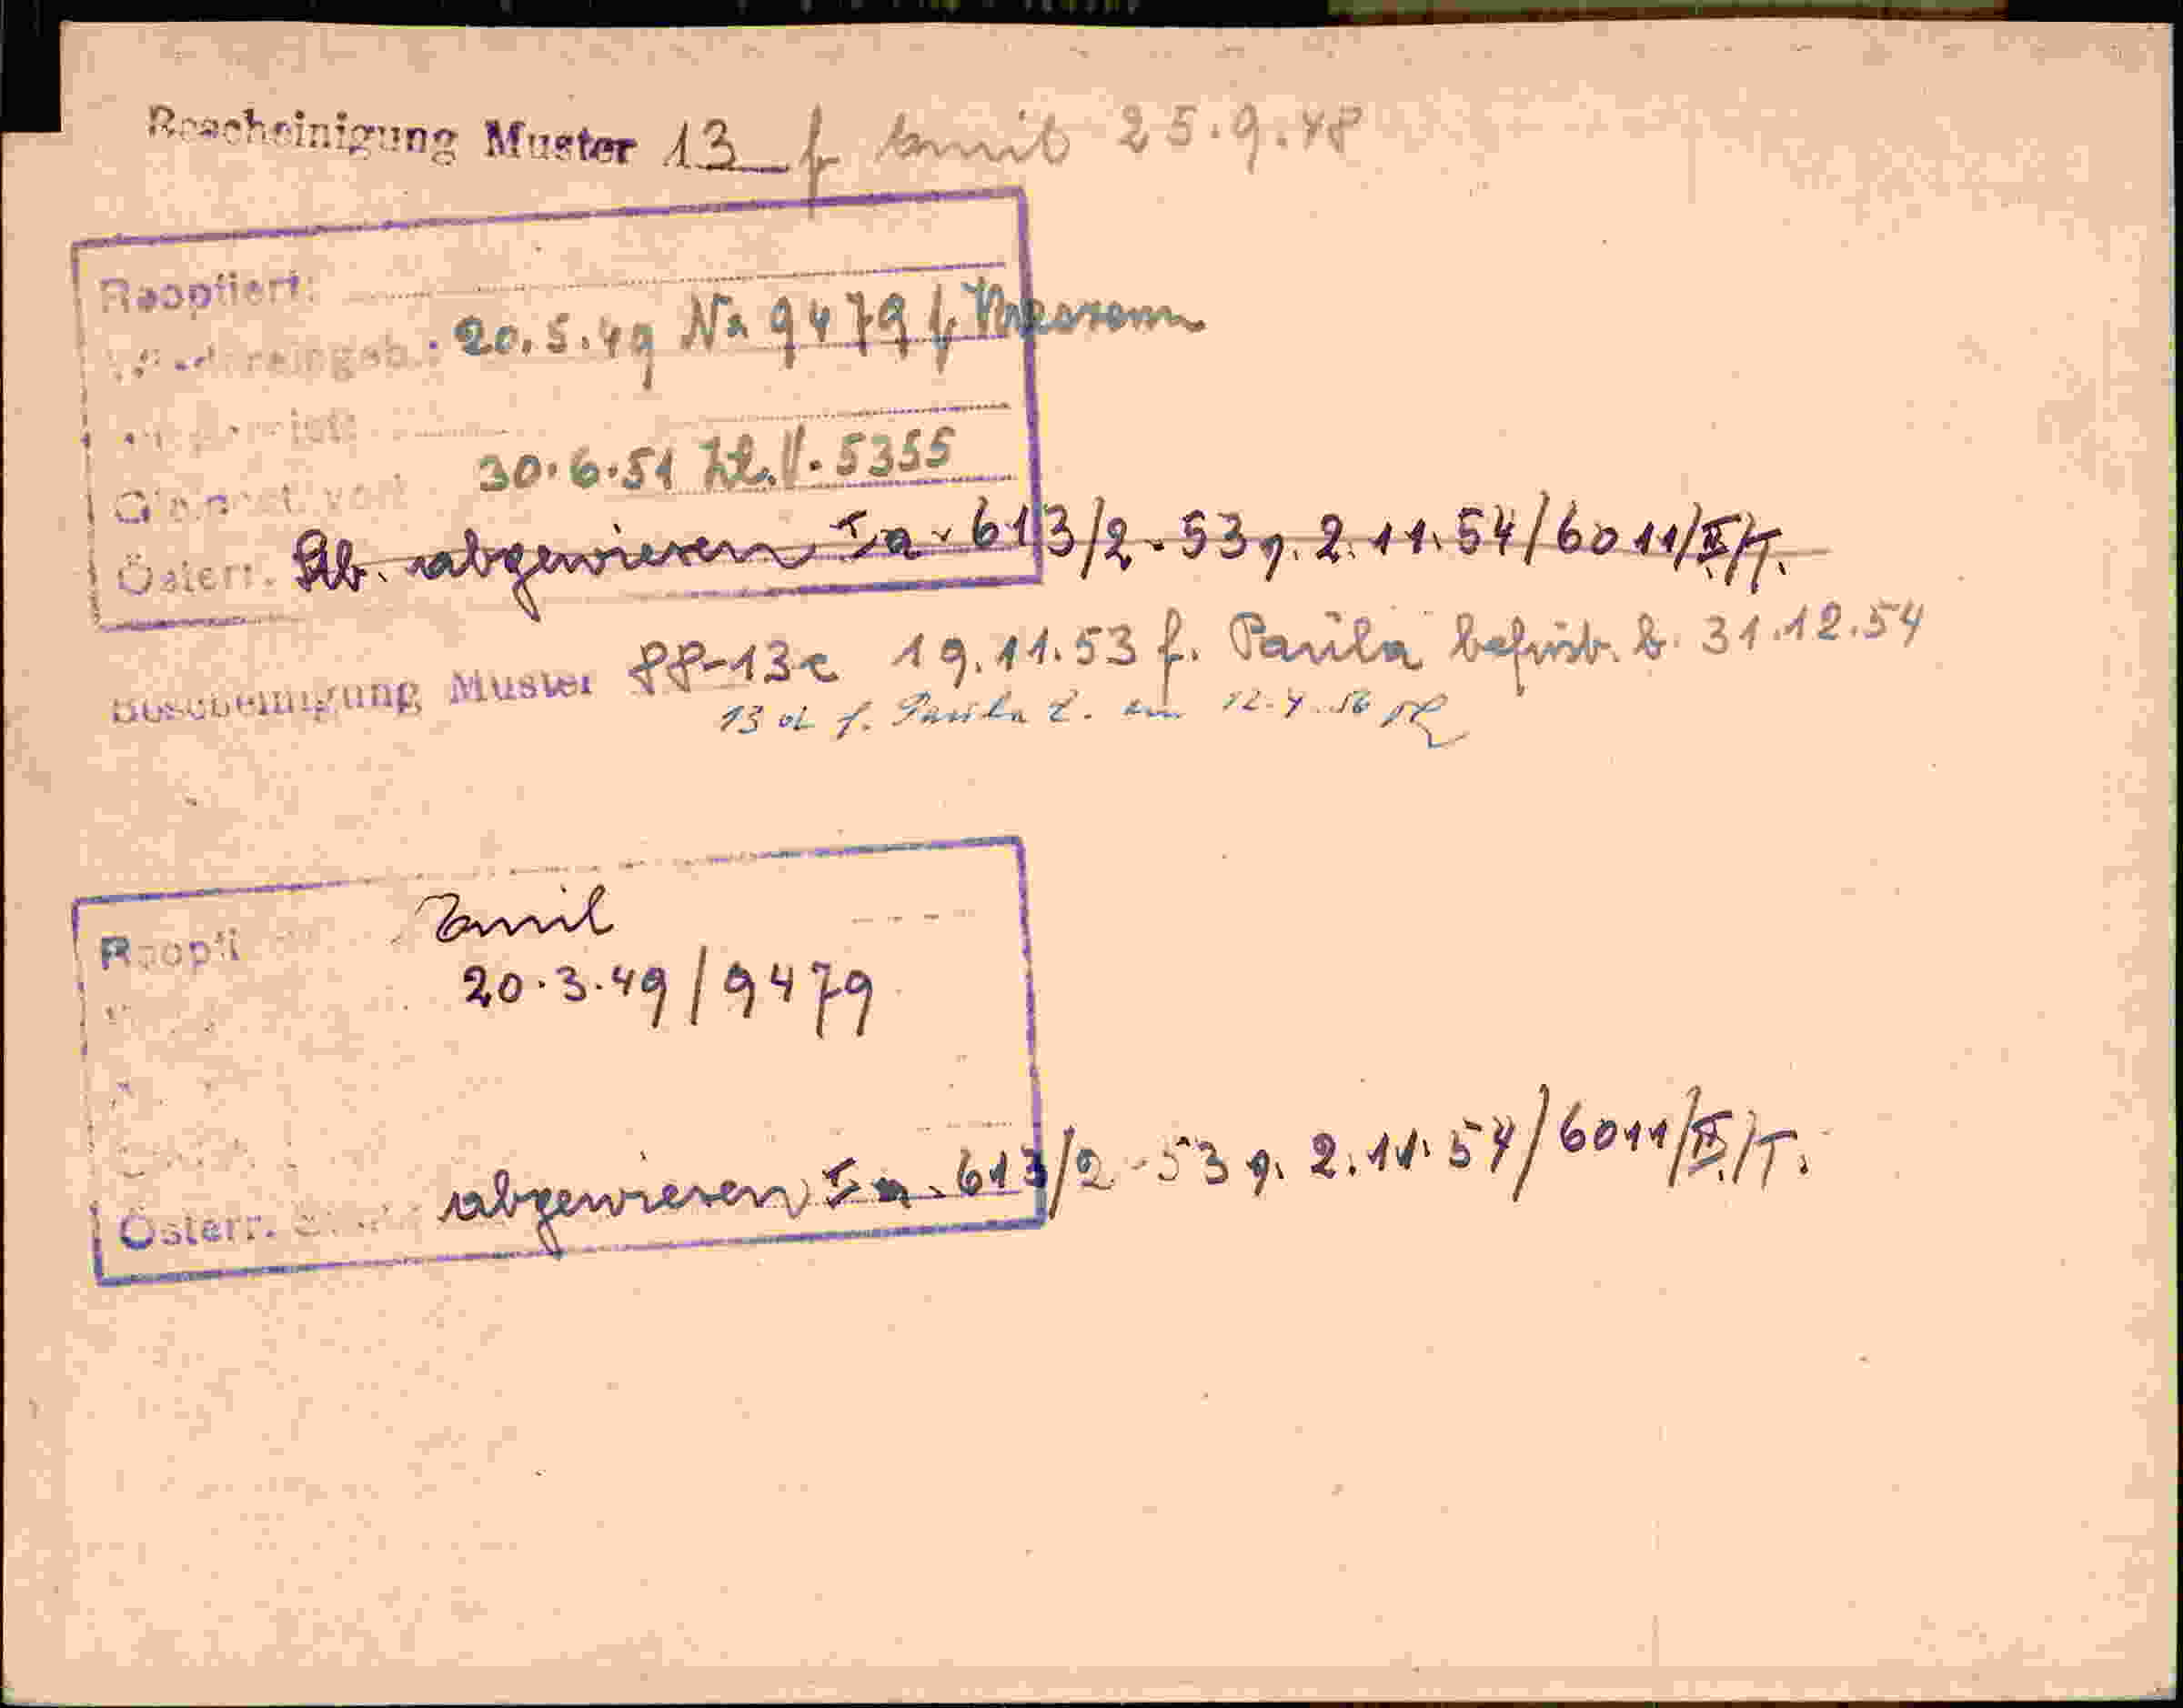 Bescheinigung Muster 13 f Emil 25.9.48
Reoptiert:
Wiedereingeb.: 20.5.49 No 9479 f
30.6.51 Zl. V. 5355
Gleichst. vorl.
Österr. Stb. abgewiesen Ia-613/2-53 v. 2.11.54/6011/II/T.
Bescheinigung Muster 88-13c 19.11.53 f. Paula befrist. b. 31.12.54
13 f. Paula am 12.4.56
Emil
Reopti
20.3.49/9479
Österr. abgewiesen Ia-613/2-53 v. 2.11.54/6011/II/T.